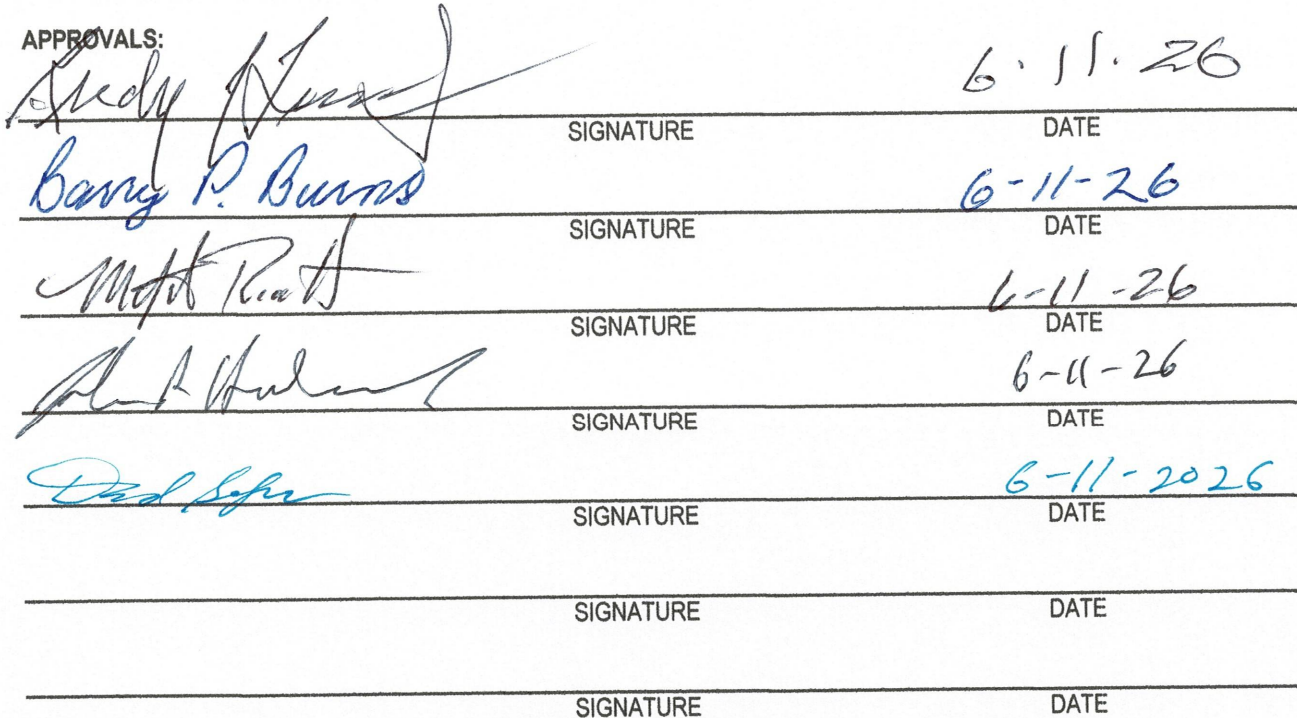 APPROVALS:
6. 11. 26
SIGNATURE DATE
Barry P. Burns 6-11-26
SIGNATURE DATE
6-11-26
SIGNATURE DATE
6-11-26
SIGNATURE DATE
6-11-2026
SIGNATURE DATE
SIGNATURE DATE
SIGNATURE DATE